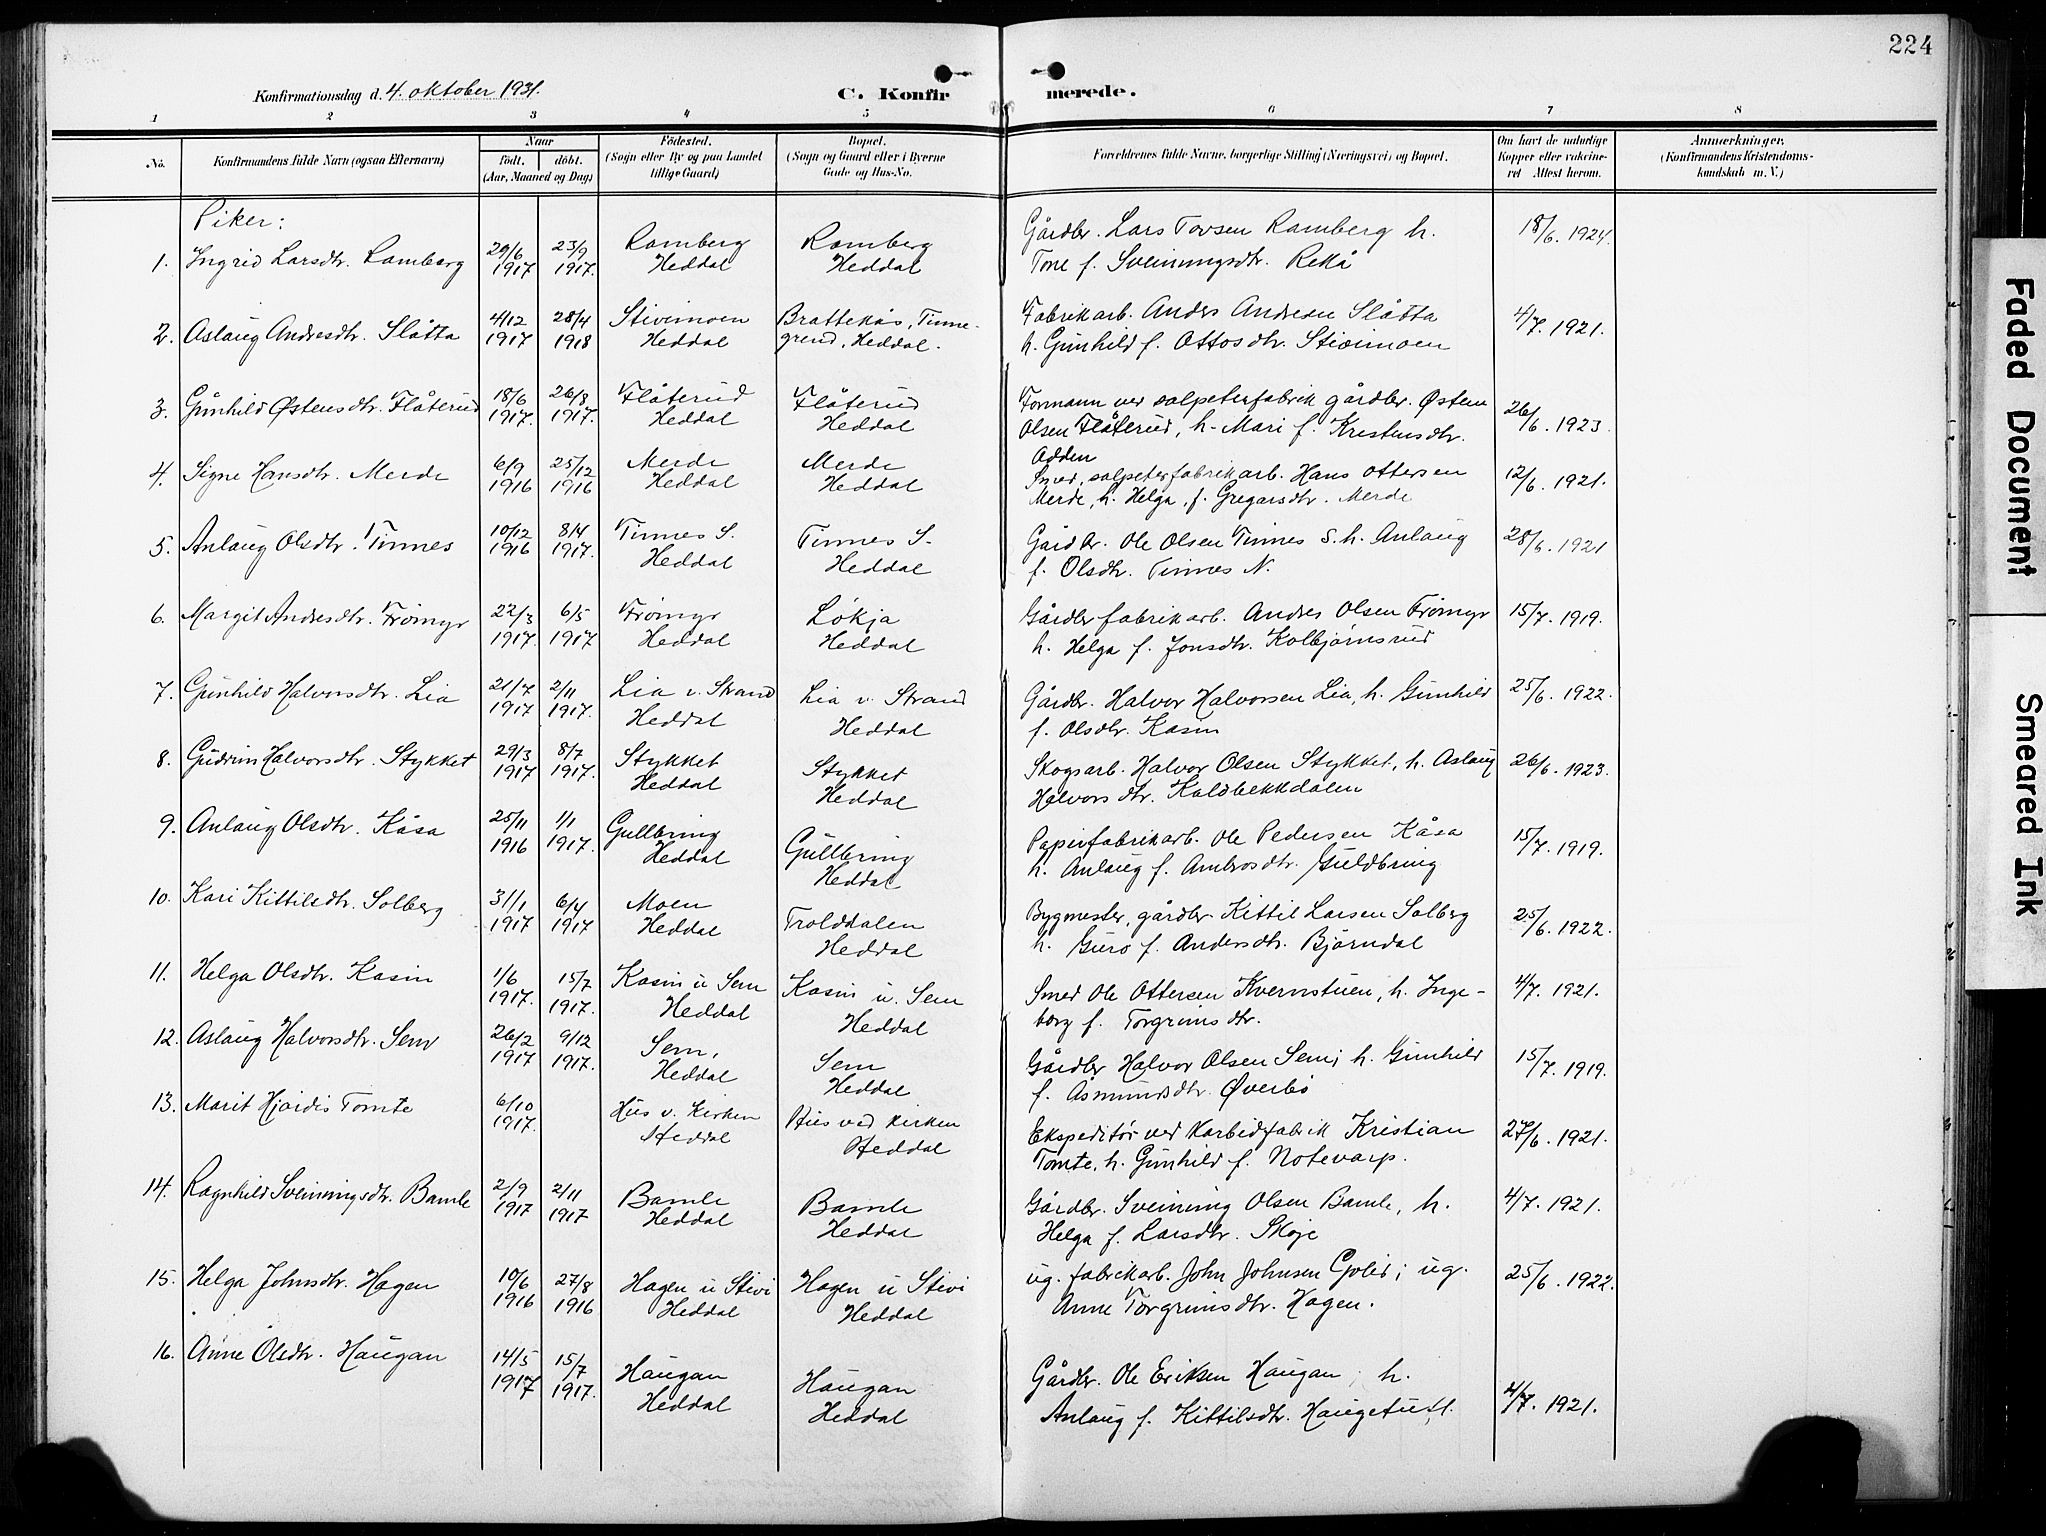 224
Konfirmationsdag d. 4. oktober 1931.
C. Konfirmerede.
1 2 3 4 5 6 7 8
No.
Konfirmandens fulde Navn (ogsaa Efternavn)
Naar
født. døbt.
(Aar, Maaned og Dag)
Fødested.
(Sogn eller By og paa Landet
tillige Gaard)
Bopæl.
(Sogn og Gaard eller i Byerne
Gade og Hus-No.
Forældrenes fulde Navne, borgerlige Stilling (Næringsvei) og Bopæl.
Om havt de naturlige
Kopper eller vakcine-
ret Attest herom.
Anmærkninger.
(Konfirmandens Kristendoms-
kundskab m. V.)
Piker:
1. Ingrid Larsdtr. Ramberg 29/6 1917 23/9 1917. Ramberg Heddal Ramberg Heddal Gårdbr. Lars Torsen Ramberg h. 18/6. 1924.
Tone f. Sveinungsdtr. Rekå
2. Aslaug Andresdtr. Slåtta 4/12 1917 28/4 1918 Stivimoen Heddal Brattekås, Tinne-
grend, Heddal. Fabrikarb. Anders Andresen Slåtta 4/7. 1921.
h. Gunhild f. Ottosdtr. Stivimoen
3. Gunhild Østensdtr. Flåterud 18/6 1917. 26/8 1917. Flåterud Heddal Flåterud Heddal Formann ved salpeterfabrik gårdbr. Østen 26/6. 1923
Olsen Flåterud, h. Mari f. Kristensdtr.
Adden
4. Signe Hansdtr. Merde 6/9 1916 25/12 1916 Merde Heddal Merde Heddal Smed, salpeterfabrikarb. Hans Ottersen 12/6. 1921.
Merde, h. Helga, f. Gregarsdtr. Merde
5. Anlaug Olsdtr. Tinnes 10/12 1916 8/4 1917. Tinnes S. Heddal Tinnes S. Heddal Gårdbr. Ole Olsen Tinnes S. h. Anlaug 28/6. 1921
f. Olsdtr. Tinnes N.
6. Margit Andresdtr. Frömyr 22/3 1917. 6/5 1917 Frömyr Heddal Lökja Heddal Gårdbr fabrikarb. Andres Olsen Frömyr 15/7. 1919.
h. Helga f. Jonsdtr. Kolbjørnsrud
7. Gunhild Halvorsdtr. Lia 21/7 1917 2/11 1917. Lia v. Strand Heddal Lia v. Strand Heddal Gårdbr. Halvor Halvorsen Lia, h. Gunhild 25/6. 1922.
f. Olsdtr. Kasin
8. Gudrun Halvorsdtr. Stykket 29/3 1917 8/7 1917. Stykket Heddal Stykket Heddal Skogsarb. Halvor Olsen Stykket, h. Aslaug 26/6. 1923.
Halvorsdtr. Kaldbekkdalen
9. Anlaug Olsdtr. Kåsa 25/11 1916 1/1 1917. Gullbring Heddal Gullbring Heddal Papirfabrikarb. Ole Pedersen Kåsa 15/7. 1919.
h. Anlaug f. Ambrosdtr. Guldbring
10. Kari Kittilsdtr. Solberg 31/1 1917 6/4 1917 Moen Heddal Trolddalen Heddal Bygmester, gårdbr. Kittil Larsen Solberg 25/6. 1922.
h. Guro f. Andersdtr. Björndal
11. Helga Olsdtr. Kasin 1/6 1917. 15/7 1917. Kasin u Sem Heddal Kasin u. Sem Heddal Smed Ole Ottersen Kvernstuen, h. Inge- 4/7. 1921.
borg f. Torgrimsdtr.
12. Aslaug Halvorsdtr. Sem 26/2 1917 9/12 1917. Sem, Heddal Sem Heddal Gårdbr Halvor Olsen Sem; h. Gunhild 15/7. 1919.
f. Åsmundsdtr. Øverbö
13. Marit Hjördis Tomte 6/10 1917. Hus v. Kirken Heddal Hus ved kirken Heddal Ekspeditör ved Karbidfabrik Kristian 27/6. 1921.
Tomte, h. Gunhild f. Notevarp.
14. Ragnhild Sveinungsdtr. Bamle 2/9 1917 2/11 1917 Bamle Heddal Bamle Heddal Gårdbr. Sveinung Olsen Bamle, h. 4/7. 1921.
Helga f. Larsdtr. Skoje
15. Helga Johnsdtr. Hagen 10/6 1916 27/8 1916 Hagen u Stivi Heddal Hagen u Stivi Heddal ug. fabrikarb. John Johnsen Golid; ug. 25/6. 1922.
Anne Torgrimsdtr. Hagen.
16. Anne Olsdtr. Haugan 14/5 1917 15/7 1917. Haugan Heddal Haugan Heddal Gårdbr. Ole Eriksen Haugan; h. 4/7. 1921.
Anlaug f. Kittilsdtr. Haugetuft.
Faded Document
Smeared Ink